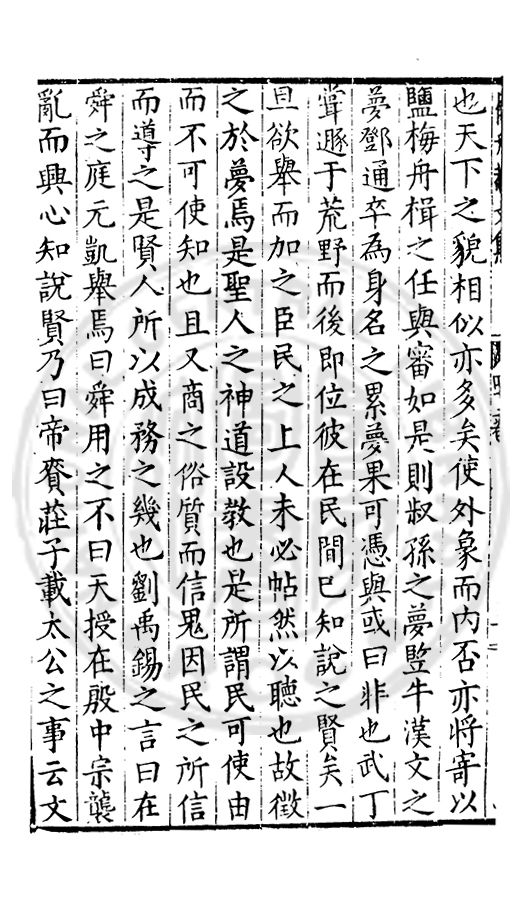 也天下之貌相似亦多矣使外象而内否亦將寄以
鹽梅舟楫之任與審如是則叔孫之夢豎牛漢文之
夢鄧通卒為身名之累夢果可憑與或曰非也武丁
嘗遯于荒野而後即位彼在民間已知說之賢矣一
旦欲舉而加之臣民之上人未必帖然以聽也故徵
之於夢焉是聖人之神道設教也是所謂民可使由
而不可使知也且又商之俗質而信鬼因民之所信
而導之是賢人所以成務之幾也劉禹錫之言曰在
舜之庭元凱舉焉曰舜用之不曰天授在殷中宗襲
亂而興心知說賢乃曰帝賚莊子載太公之事云文